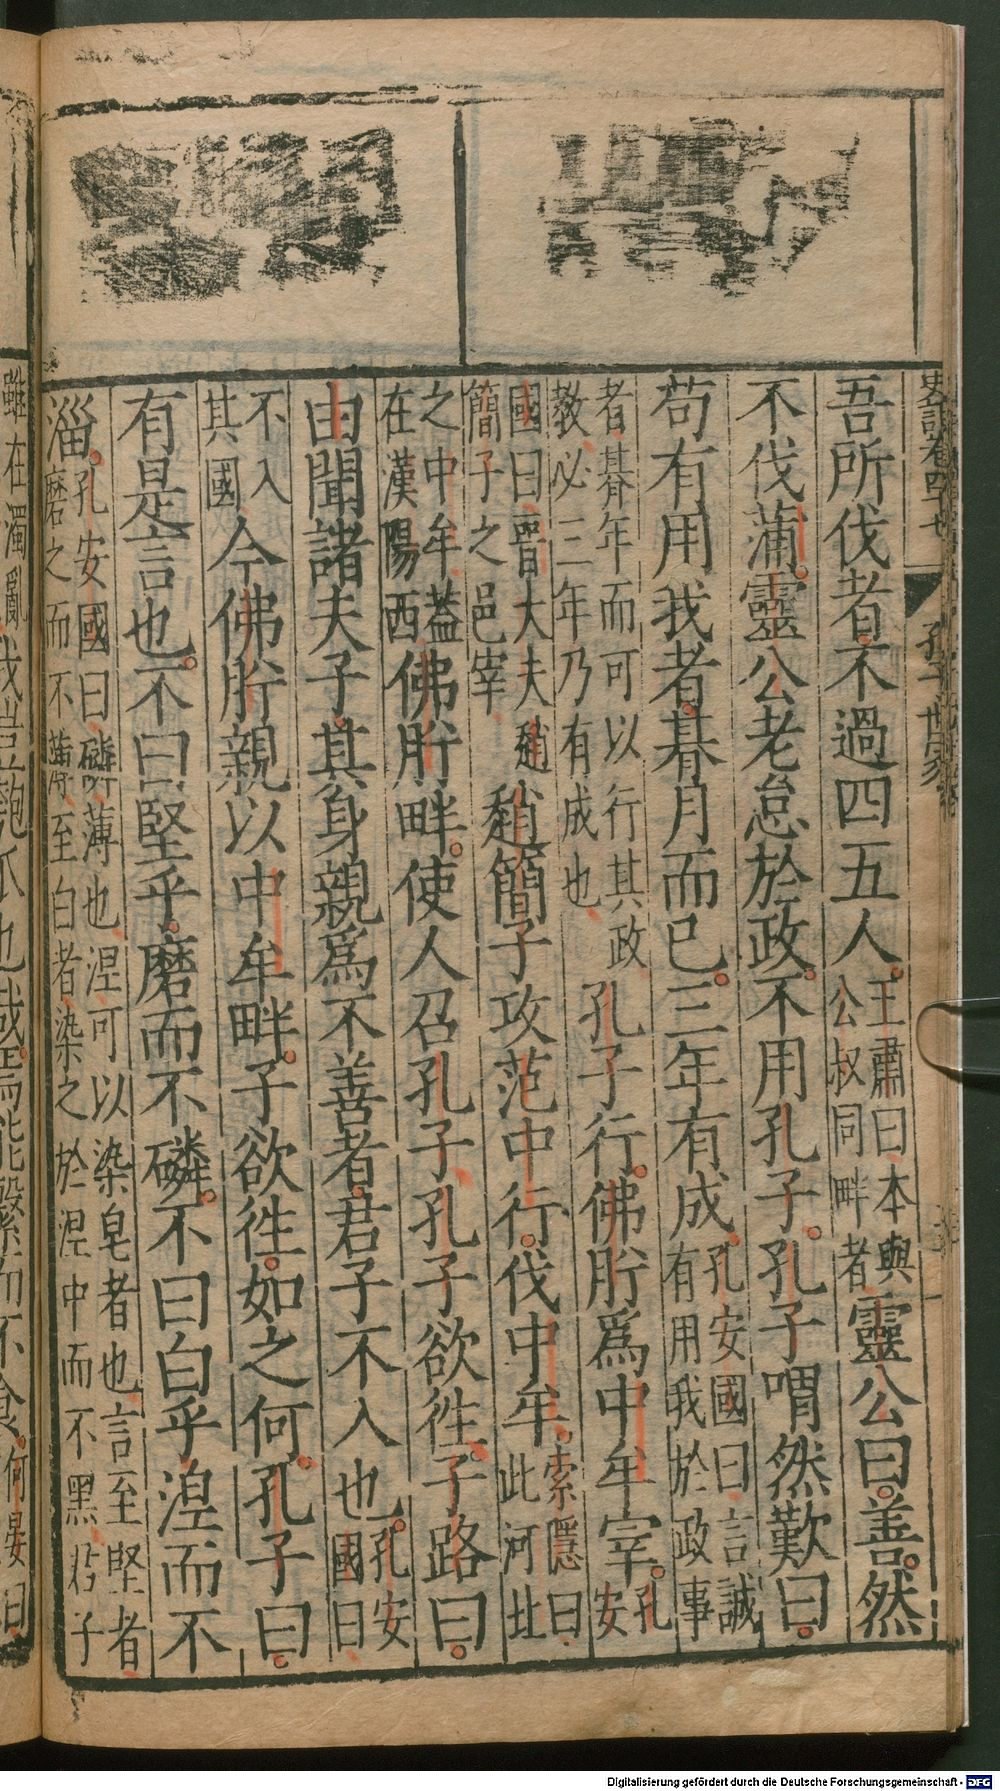 史記卷四十七
孔子世家
吾所伐者不過四五人王肅曰本與公叔同畔者靈公曰善然
不伐蒲靈公老怠於政不用孔子孔子喟然歎曰
苟有用我者朞月而已三年有成孔安國曰言誠有用我於政事
者朞年而可以行其政教必三年乃有成也孔子行佛肸爲中牟宰孔安
國曰晉大夫趙簡子之邑宰趙簡子攻范中行伐中牟索隱曰此河北
之中牟蓋在漢陽西佛肸畔使人召孔子孔子欲徃子路曰
由聞諸夫子其身親爲不善者君子不入也孔安國曰
不入其國今佛肸親以中牟畔子欲徃如之何孔子曰
有是言也不曰堅乎磨而不磷不曰白乎湼而不
淄孔安國曰磷薄也湼可以染皂者也言至堅者磨之而不薄至白者染之於湼中而不黑君子
雖在濁亂
我豈匏瓜也哉焉能繫而不食何晏曰
Digitalisierung gefördert durch die Deutsche Forschungsgemeinschaft - DFG